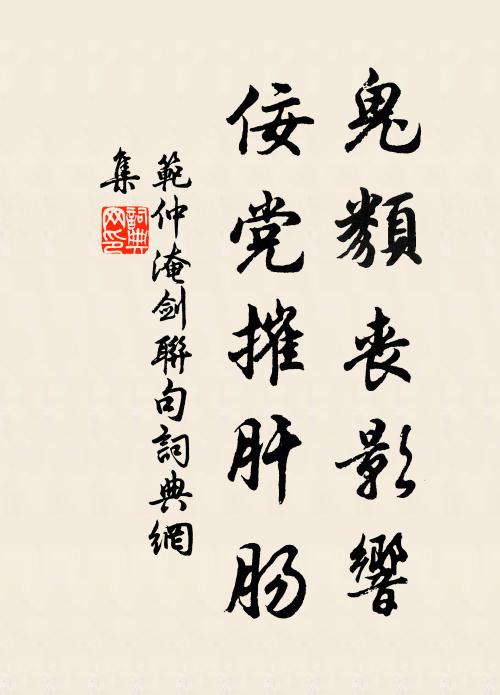 鬼類丧影響
佞党摧肝肠
範仲淹剑聯句詞典網
集
詞典
网印